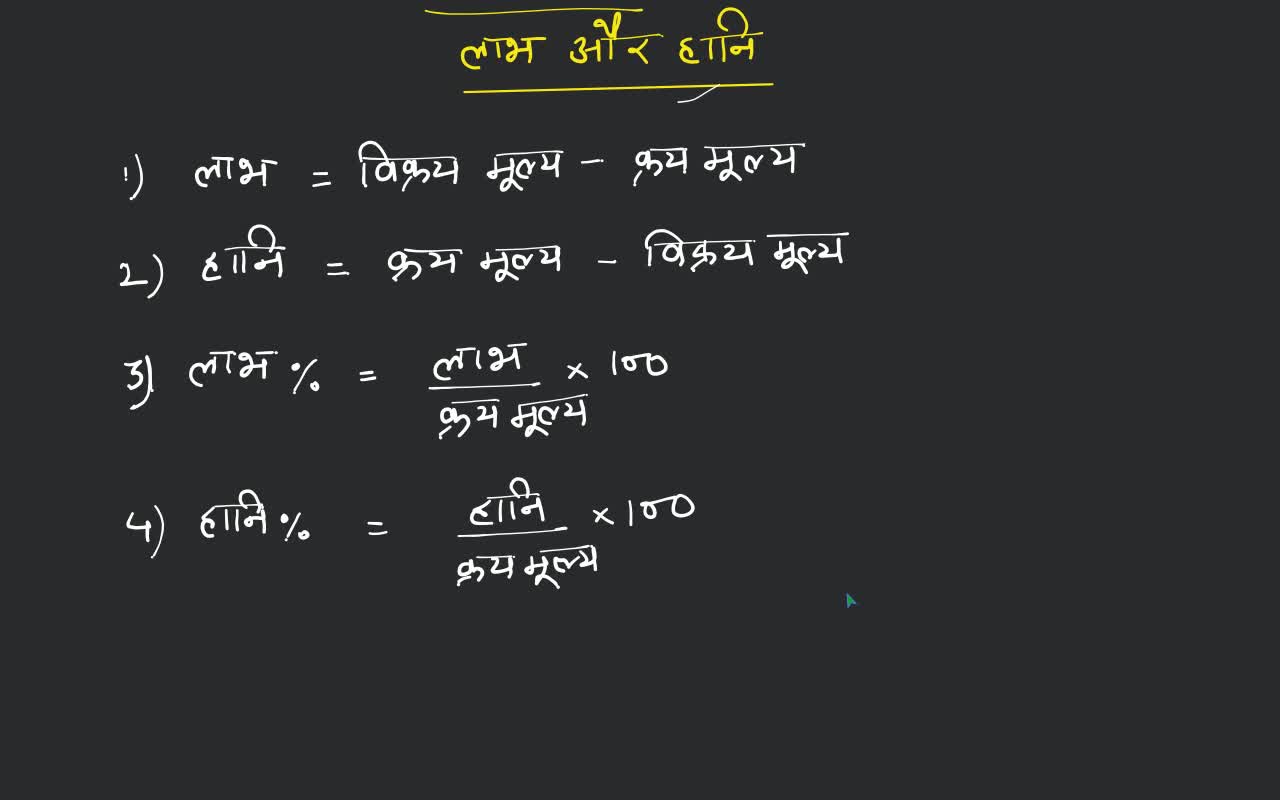 लाभ और हानि
1) लाभ = विक्रय मूल्य - क्रय मूल्य
2) हानि = क्रय मूल्य - विक्रय मूल्य
3) लाभ % = लाभ / क्रय मूल्य × 100
4) हानि % = हानि / क्रय मूल्य × 100